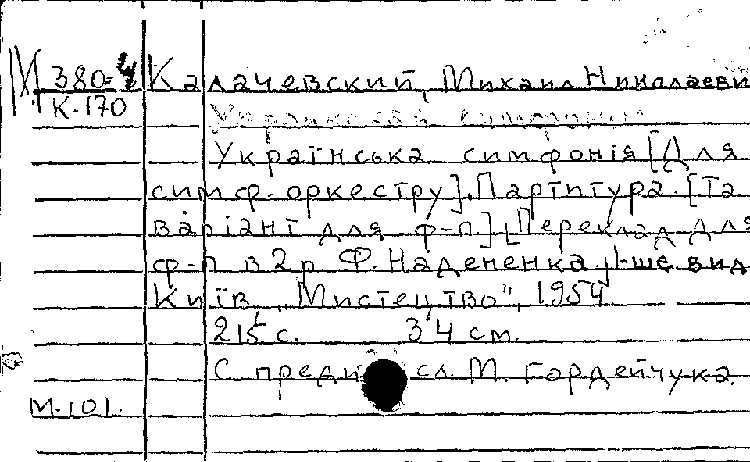 М 380-4 Калачевский, Михаил Николаеви
К-170
Українська симфонія [Для
симф. оркестру]. Партитура. [Та
варіант для ф-п] [Переклад для
ф-п в 2р Ф. Надененка, 1-ше вид
Київ, "Мистецтво", 1954
215 с. 34 см.
С преди сл. М. Гордейчука.
М-101.